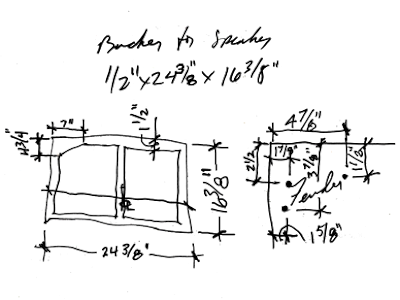 Backer for Speaker
1/2" x 24 3/8" x 16 3/8"
7"
1 1/2"
4 3/4"
16 3/8"
24 3/8"
4 7/8"
1 7/8"
2 1/2
3 7/8"
1 1/8"
Fender
1 5/8"